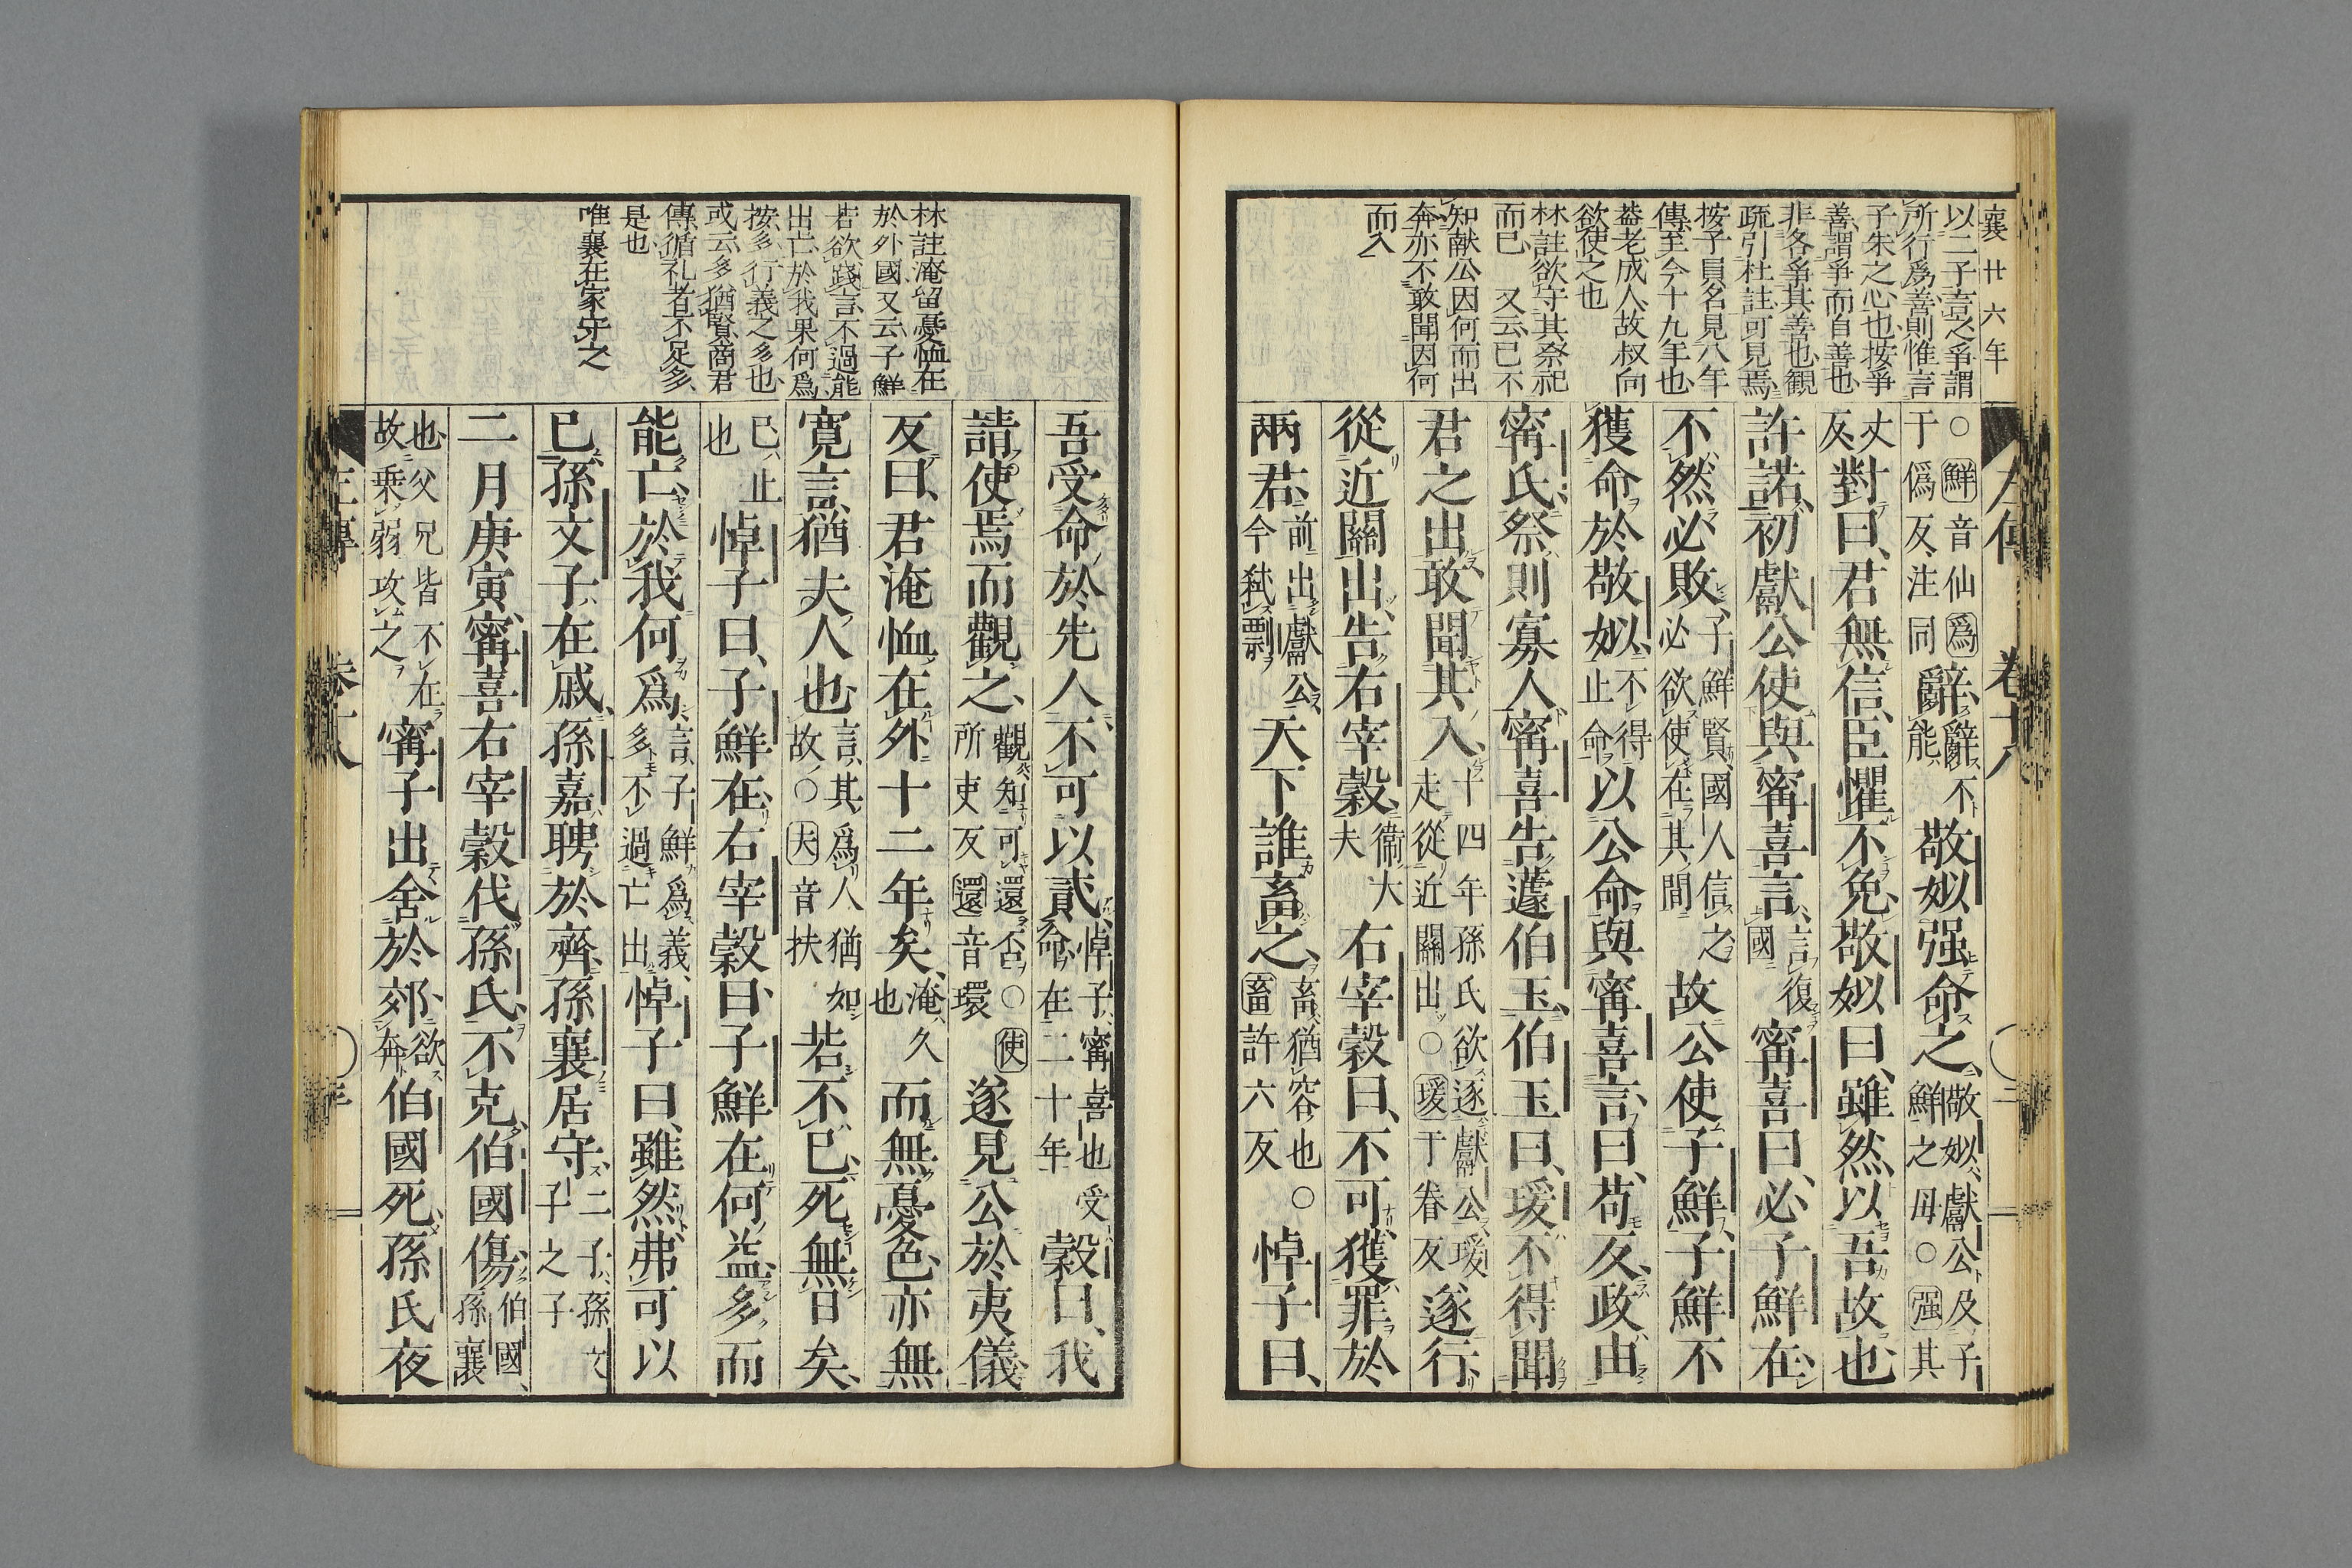 襄廿六年
以二子言之爭謂
所行爲善則惟言
子朱之心也按爭
善謂爭而自善也
非各爭其善也觀
疏引杜註可見焉
按子員名見八年
傳至今十九年也
葢老成人故叔向
欲使之也
林註欲守其祭祀
而已　又云已不
知献公因何而出
奔亦不敢聞因何
而入
左傳　卷十八
○鮮音仙爲于僞反注同辭辭不能敬姒强命之敬姒獻公及子鮮之母○强其
丈反對曰君無信臣懼不免敬姒曰雖然以吾故也
許諾初獻公使與寗喜言言復國寗喜曰必子鮮在
不然必敗子鮮賢國人信之必欲使在其間故公使子鮮子鮮不
獲命於敬姒不得止命以公命與寗喜言曰苟反政由
寗氏祭則寡人寗喜告蘧伯玉伯玉曰瑗不得聞
君之出敢聞其入十四年孫氏欲逐獻公瑗走從近關出○瑗于眷反遂行
從近關出告右宰穀衞大夫右宰穀曰不可獲罪於
兩君前出獻公今弒剽天下誰畜之畜猶容也畜許六反○悼子曰
林註淹留憂恤在
於外國又云子鮮
若欲踐言不過能
出亡於我果何爲
按多行義之多也
或云多猶賢商君
傳循礼者不足多
是也
唯襄在家守之
吾受命於先人不可以貳悼子寗喜也受命在二十年穀曰我
請使焉而觀之觀知可還否○使所吏反還音環遂見公於夷儀
反曰君淹恤在外十二年矣淹久也而無憂色亦無
寛言猶夫人也言其爲人猶如故○夫音扶若不已死無日矣
已止也悼子曰子鮮在右宰穀曰子鮮在何益多而
能亡於我何爲言子鮮爲義多不過亡出悼子曰雖然弗可以
已孫文子在戚孫嘉聘於齊孫襄居守二子孫文子之子
二月庚寅寗喜右宰穀伐孫氏不克伯國傷伯國孫襄
也父兄皆不在故乘弱攻之寗子出舍於郊欲奔伯國死孫氏夜